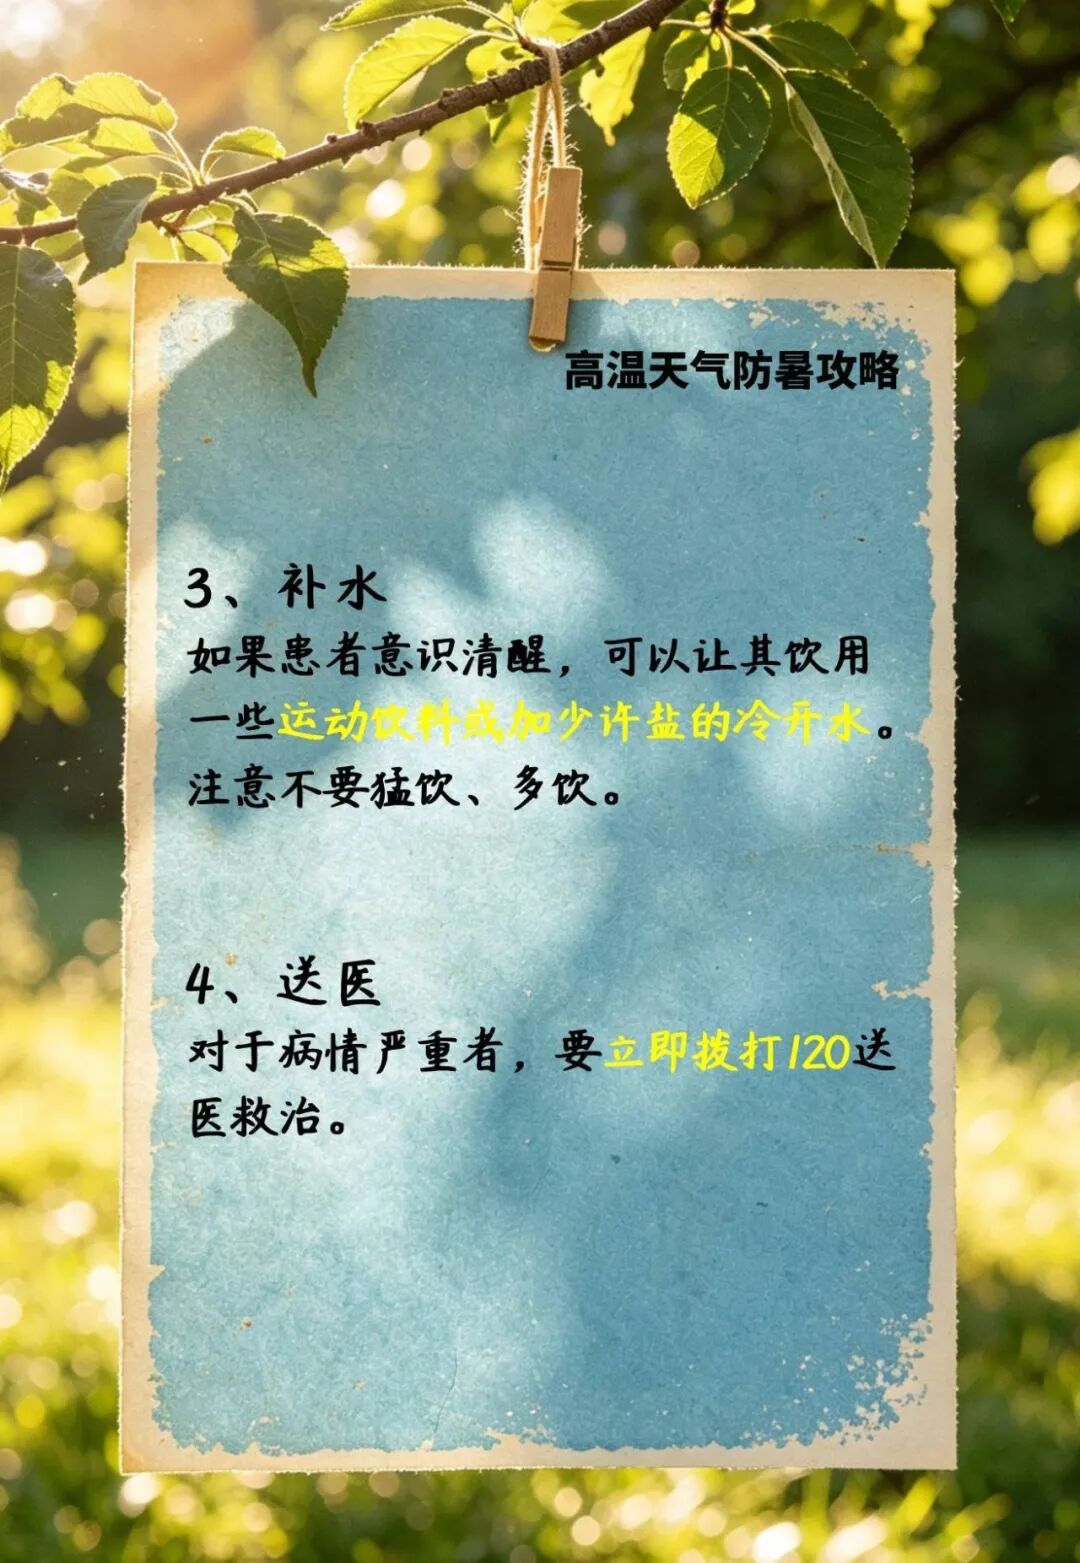 高温天气防暑攻略
3、补水
如果患者意识清醒，可以让其饮用
一些运动饮料或加少许盐的冷开水。
注意不要猛饮、多饮。
4、送医
对于病情严重者，要立即拨打120送
医救治。